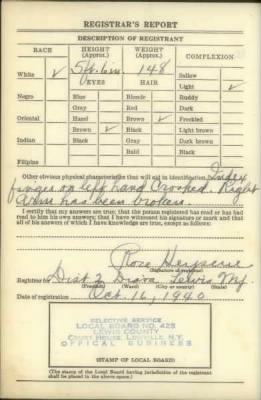 REGISTRAR'S REPORT
DESCRIPTION OF REGISTRANT
RACE HEIGHT (Approx.) WEIGHT (Approx.) COMPLEXION
5 ft. 6 in. 148
White ✓ EYES HAIR Sallow
Light ✓
Negro Blue Blonde Ruddy
Gray Red Dark
Oriental Hazel Brown ✓ Freckled
Brown ✓ Black Light brown
Indian Black Gray Dark brown
Bald Black
Filipino
Other obvious physical characteristics that will aid in identification Index
finger on left hand Crooked. Right
Arm has been broken.
I certify that my answers are true; that the person registered has read or has had
read to him his own answers; that I have witnessed his signature or mark and that
all of his answers of which I have knowledge are true, except as follows:
Rose
(Signature of registrar)
Registrar for Dist 2 Lewis N.Y.
(Precinct) (Ward) (City or county) (State)
Date of registration Oct. 16, 1940
SELECTIVE SERVICE
LOCAL BOARD NO. 425
LEWIS COUNTY
COURT HOUSE, LOWVILLE, N.Y.
OFFICAL BUSINESS
(STAMP OF LOCAL BOARD)
(The stamp of the Local Board having jurisdiction of the registrant
shall be placed in the above space.)